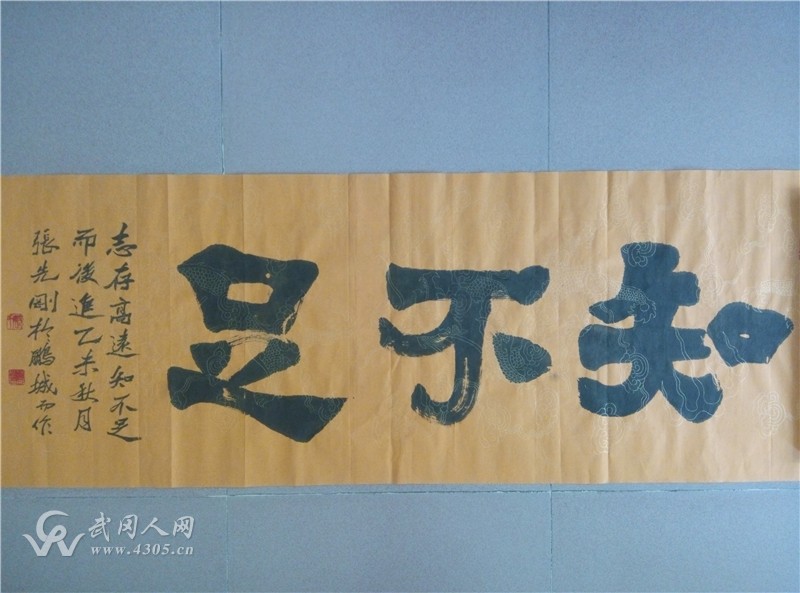 知不足
志存高遠知不足
而後進乙未秋月
張先剛於鵬城而作
武冈人网
www.4305.cn